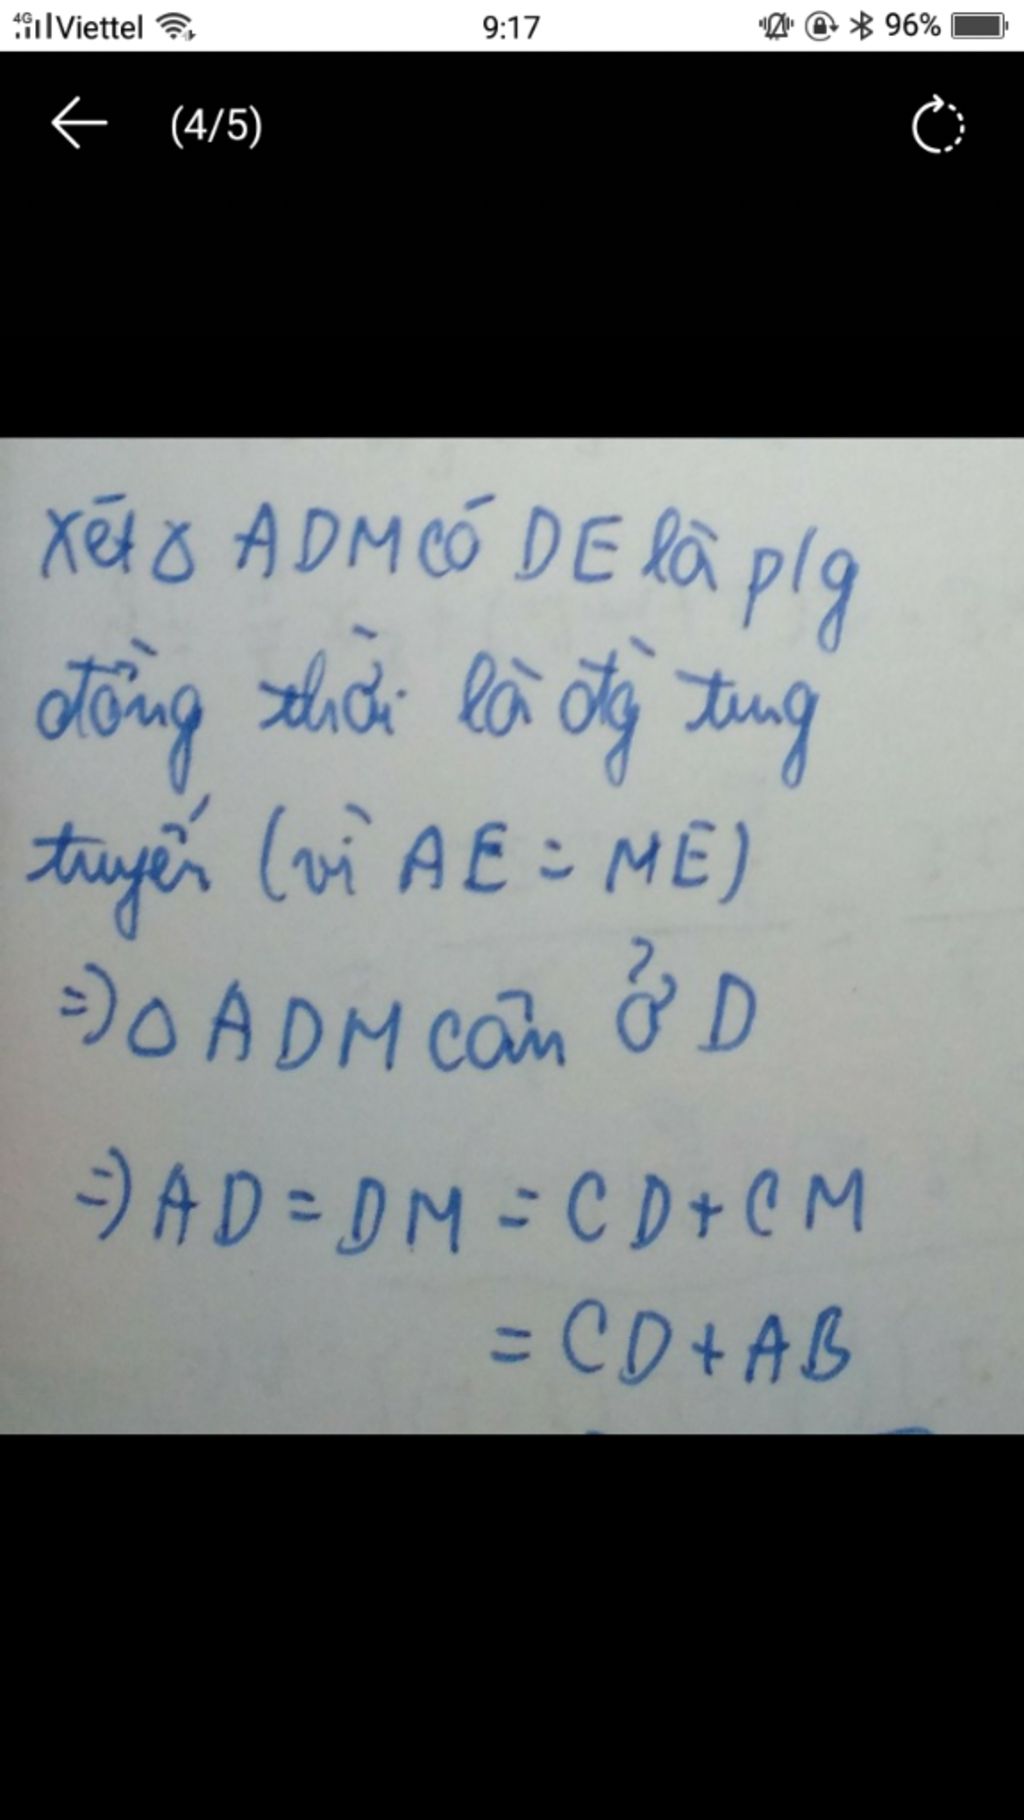 4G Viettel 9:17 96%
(4/5)
Xét Δ ADM có DE là p/g
đồng thời là đg̀ tung
tuyến (vì AE = ME)
=> Δ ADM cân ở D
=> AD = DM = CD + CM
= CD + AB